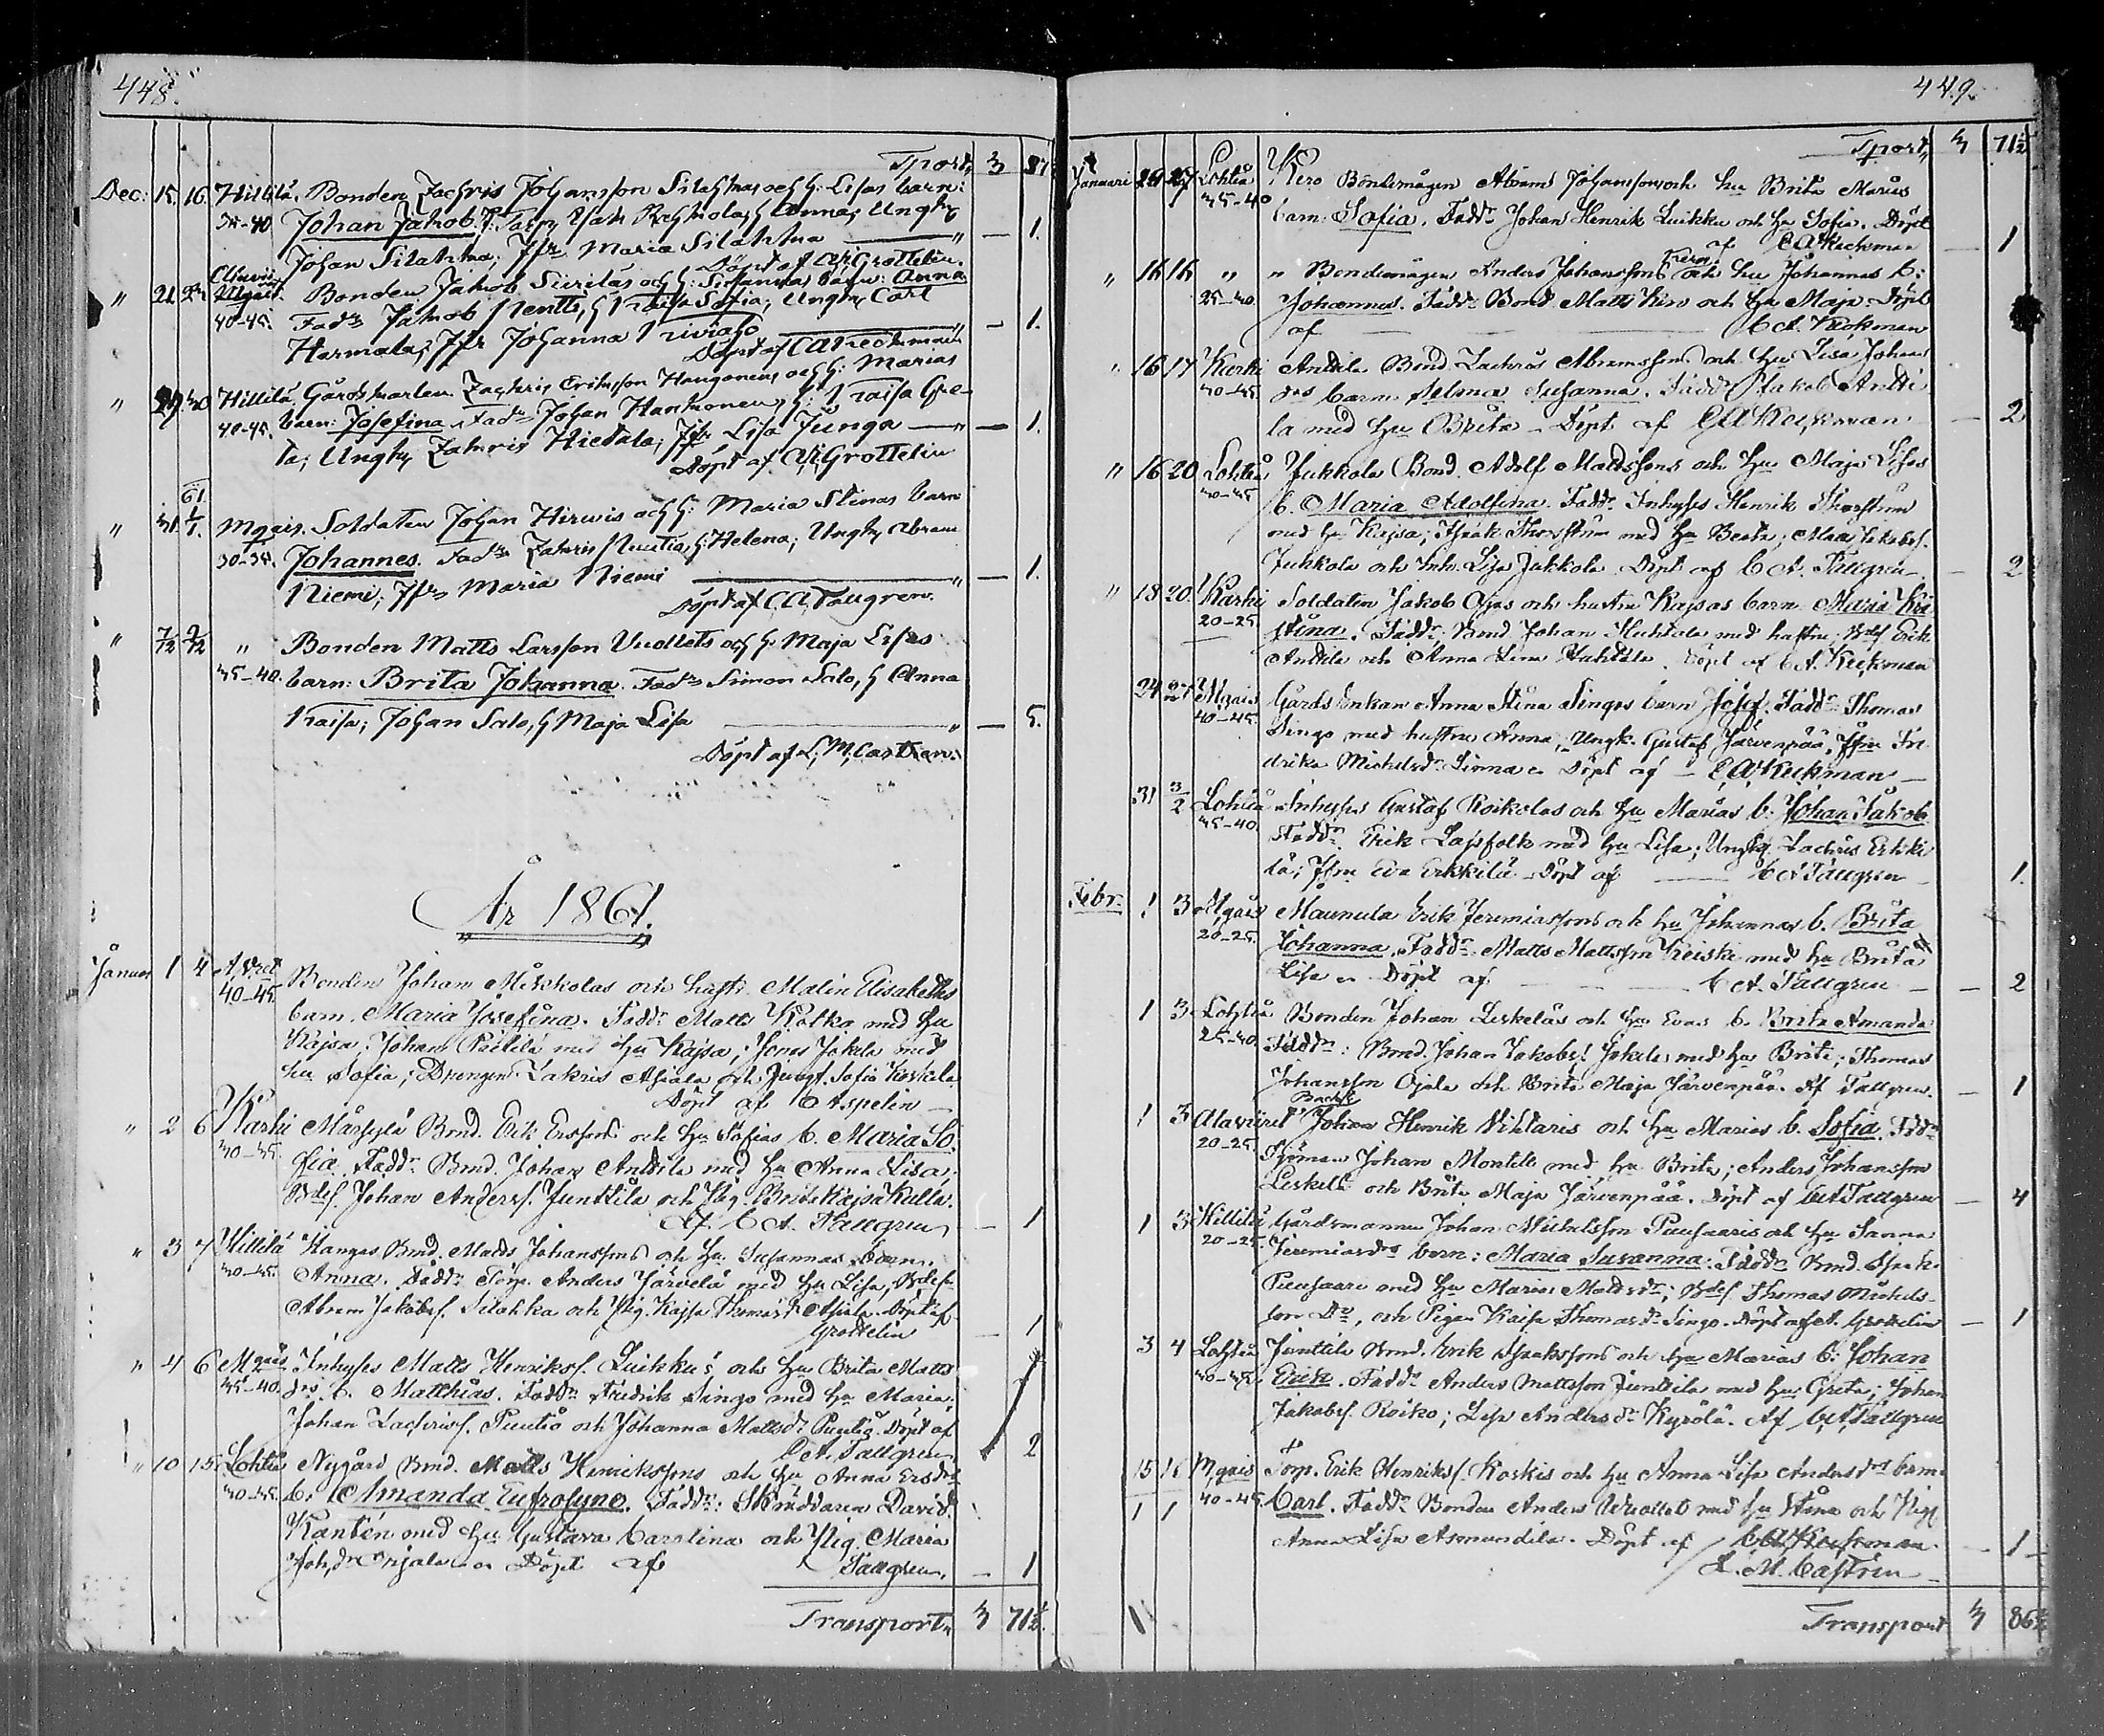 448.
Tport, 3 87
Dec: 15. 16. Hillilä. Bonden Zachris Johansson Silahkas och h: Lisas barn:
30-40 Johan Jakob.
Johan Silahka; Jfr Maria Silahka — " — 1.
Döpt af A.H. Grottelin.
" 21 Bonden Jakob och h: Susannas barn: Anna
40-45. Fadr Jakob Kentts, h Kaisa Sofia; Ungk Carl
Harmala; Jfr Johanna — " — 1.
Döpt af C A Keckman
" 29 30 Hillilä Gårds Karlen Zachris Eriksson Haugonens och h: Marias
40-45. barn: Josefina. Fadr Johan Hankonen, h: Kaisa Gre-
ta; Ungk Zakris Hietala; Jfr Lisa Junga — " — 1.
Döpt af A.H. Grottelin
61.
" 31. 1/1. Mgais. Soldaten Johan Hirwis och h: Maria Stinas barn
30-35. Johannes. Fadr Zakris h: Helena; Ungk Abram
Niemi; Jfr Maria Niemi — " — 1.
Döpt af C.A. Tallgren.
" 7/12 9/12 " Bonden Matts Larsson Vuollets och h: Maja Lisas
35-40. barn: Brita Johanna. Fadr Simon Salo, h Anna
Kaisa; Johan Salo, h Maja Lisa — " — 5.
Döpt af L. M. Castren.
År 1861.
Januar 1 4
40-45. Bonden Johan Märkkolas och hustr. Malin Elisabeths
barn. Maria Josefina. Fadd: Matts Kotka med hu
Kajsa; Johan med hu Kajsa; Jonas Jokela med
hu Sofia; Drengen Zakris Asiala och Jungf. Sofia Koskela
Döpt af Aspelin
" 2 6 Karhi Bond. Erik Erssons och hu Sofias b. Maria So-
30-35. fia. Faddr Bond. Johan Anttila med hu Anna Lisa;
Bdes. Johan Anderss. Junttila och Pig. Brita Kajsa Kulla.
Af C A. Tallgren — 1
" 3 7 Hillilä Hangas Bond. Matts Johanssons och hu Susannas barn.
30-45. Anna. Faddr Torp. Anders Järvelä med hu Lisa, Bdes-
Abram Jakobss. Silahka och Pig. Kajsa Thomasdr Asiala. Döpt af
Grottelin — 1
" 4 6 Mgais Inhyses Matts Henrikss. Luikku's och hu Brita Matts
35-40. drs b. Matthias. Faddr Fredrik Singo med hu Maria;
Johan Zachriss. Puutio och Johanna Mattsdr Puutio. Döpt af
C A. Tallgren 2
" 10 15 Lohteå Nygård Bond. Matts Henrikssons och hu Anna Ersdrs
30-35. b. Amanda Eufrosyne. Faddr: Skräddaren David
Kantén med hu Gustava Carolina och Pig. Maria
Joh.dr Ojala Döpt af Tallgren. — 1
Transport, 3 71½.
449.
Tport, 3 71½
Januari 24 27 Lohteå Kero Bondemågen Abram Johanssons och hu Brita Marias
35-40 barn: Sofia. Faddr Johan Henrik Luikku och hu Sofia. Döpt
af C A Keckman — 1
" 16 16 " " Bondemågen Anders Johanssons Kero och hu Johannas b:
25-30. Johannes. Faddr Bond Matts Kero och hu Maja Döpt
af — C A. Keckman
" 16 17 Karhi Anttila Bond. Zachris Abramssons och hu Lisa Johans
40-45. drs barn. Selma Susanna. Faddr Jakob Antti-
la med hu Brita – Döpt af C A Keckman — 2
" 16 20 Lohteå Jukkola Bond. Adolf Mattssons och hu Maja Lisas
40-45 b. Maria Adolfina. Faddr Inhyses Henrik Thorström
med hu Kajsa; Isak Thorström med hu Beata; Maja Jakobs.
Jukkola och Inh. Lisa Jukkola. Döpt af C A. Tallgren — 2
" 18 20 Karhi Soldaten Jakob Ojas och hustru Kajsas barn Maria Kri
20-25. stina. Faddr: Bond. Johan Huhtala med hustru; Bdes Erik
Anttila och Anna Lena Huhtala. Döpt af C A. Keckman
24 27 Mgais Gårds Enkan Anna Stina Singos barn Josef. Faddr Thomas
40-45. Singo med hustru Anna; Ungk. Gustaf Järvenpää; Jfrn Fre
drika Mickelsdr Linna Döpt af – C A Keckman
31 3/2 Lohteå Inhyses Gustaf Roikolas och hu Marias b: Johan Jakob.
35-40. Faddr. Erik Lapsfolk med hu Lisa; Ungkg. Zachris Erkki
lä; Jfrn Eva Erkkilä – Döpt af — C A Tallgren 1.
Febr. 1 3 Mgais Maunula Erik Jeremiassons och hu Johannas b. Brita
20-25. Johanna. Faddr Matts Mattsson Keiski med hu Brita
Lisa Döpt af — C A. Tallgren — 2
1 3 Lohteå Bonden Johan Leskeläs och hu Evas b. Brita Amanda
25-30. Faddr: Bond. Johan Jakobs. Jokela med hu Brita; Thomas
Johansson Ojala och Brita Maja Järvenpää. Af Tallgren. — 1
1 3 Alaviirret Johan Henrik Nihtaris och hu Marias b. Sofia. Faddr
20-25. Sjöman Johan Montell med hu Brita; Anders Johansson
Leskelä och Brita Maja Järvenpää. Döpt af C A Tallgren — 4
1 3 Hillilä Gårdsmannen Johan Michelsson Puusaaris och hu Sanna
20-25. Jeremiasdrs barn: Maria Susanna. Faddr Bond. Isak
Puusaari med hu Maria Mattsdr; Bdes Thomas Michels-
son Do, och Pigan Kaisa Thomasdr Singo. Döpt af A. Grottelin — 1
3 4 Lohteå Junttila Bond. Erik Isakssons och hu Marias b: Johan
Erik. Faddr Anders Mattsson Junttila med hu Greta; Johan
Jakobs. Roiko; Lisa Andersdr Kyrölä. Af C A Tallgren
15 16 Mgais Torp. Erik Henrikss. Koskis och hu Anna Lisa Andersdrs barn
40-45 Carl. Faddr Bonden Anders Wuollet med hu Stina och Pig.
Anna Lisa Asmundila. Döpt af C A Keckman. — 1
L. M. Castrén
Transport 3 86½